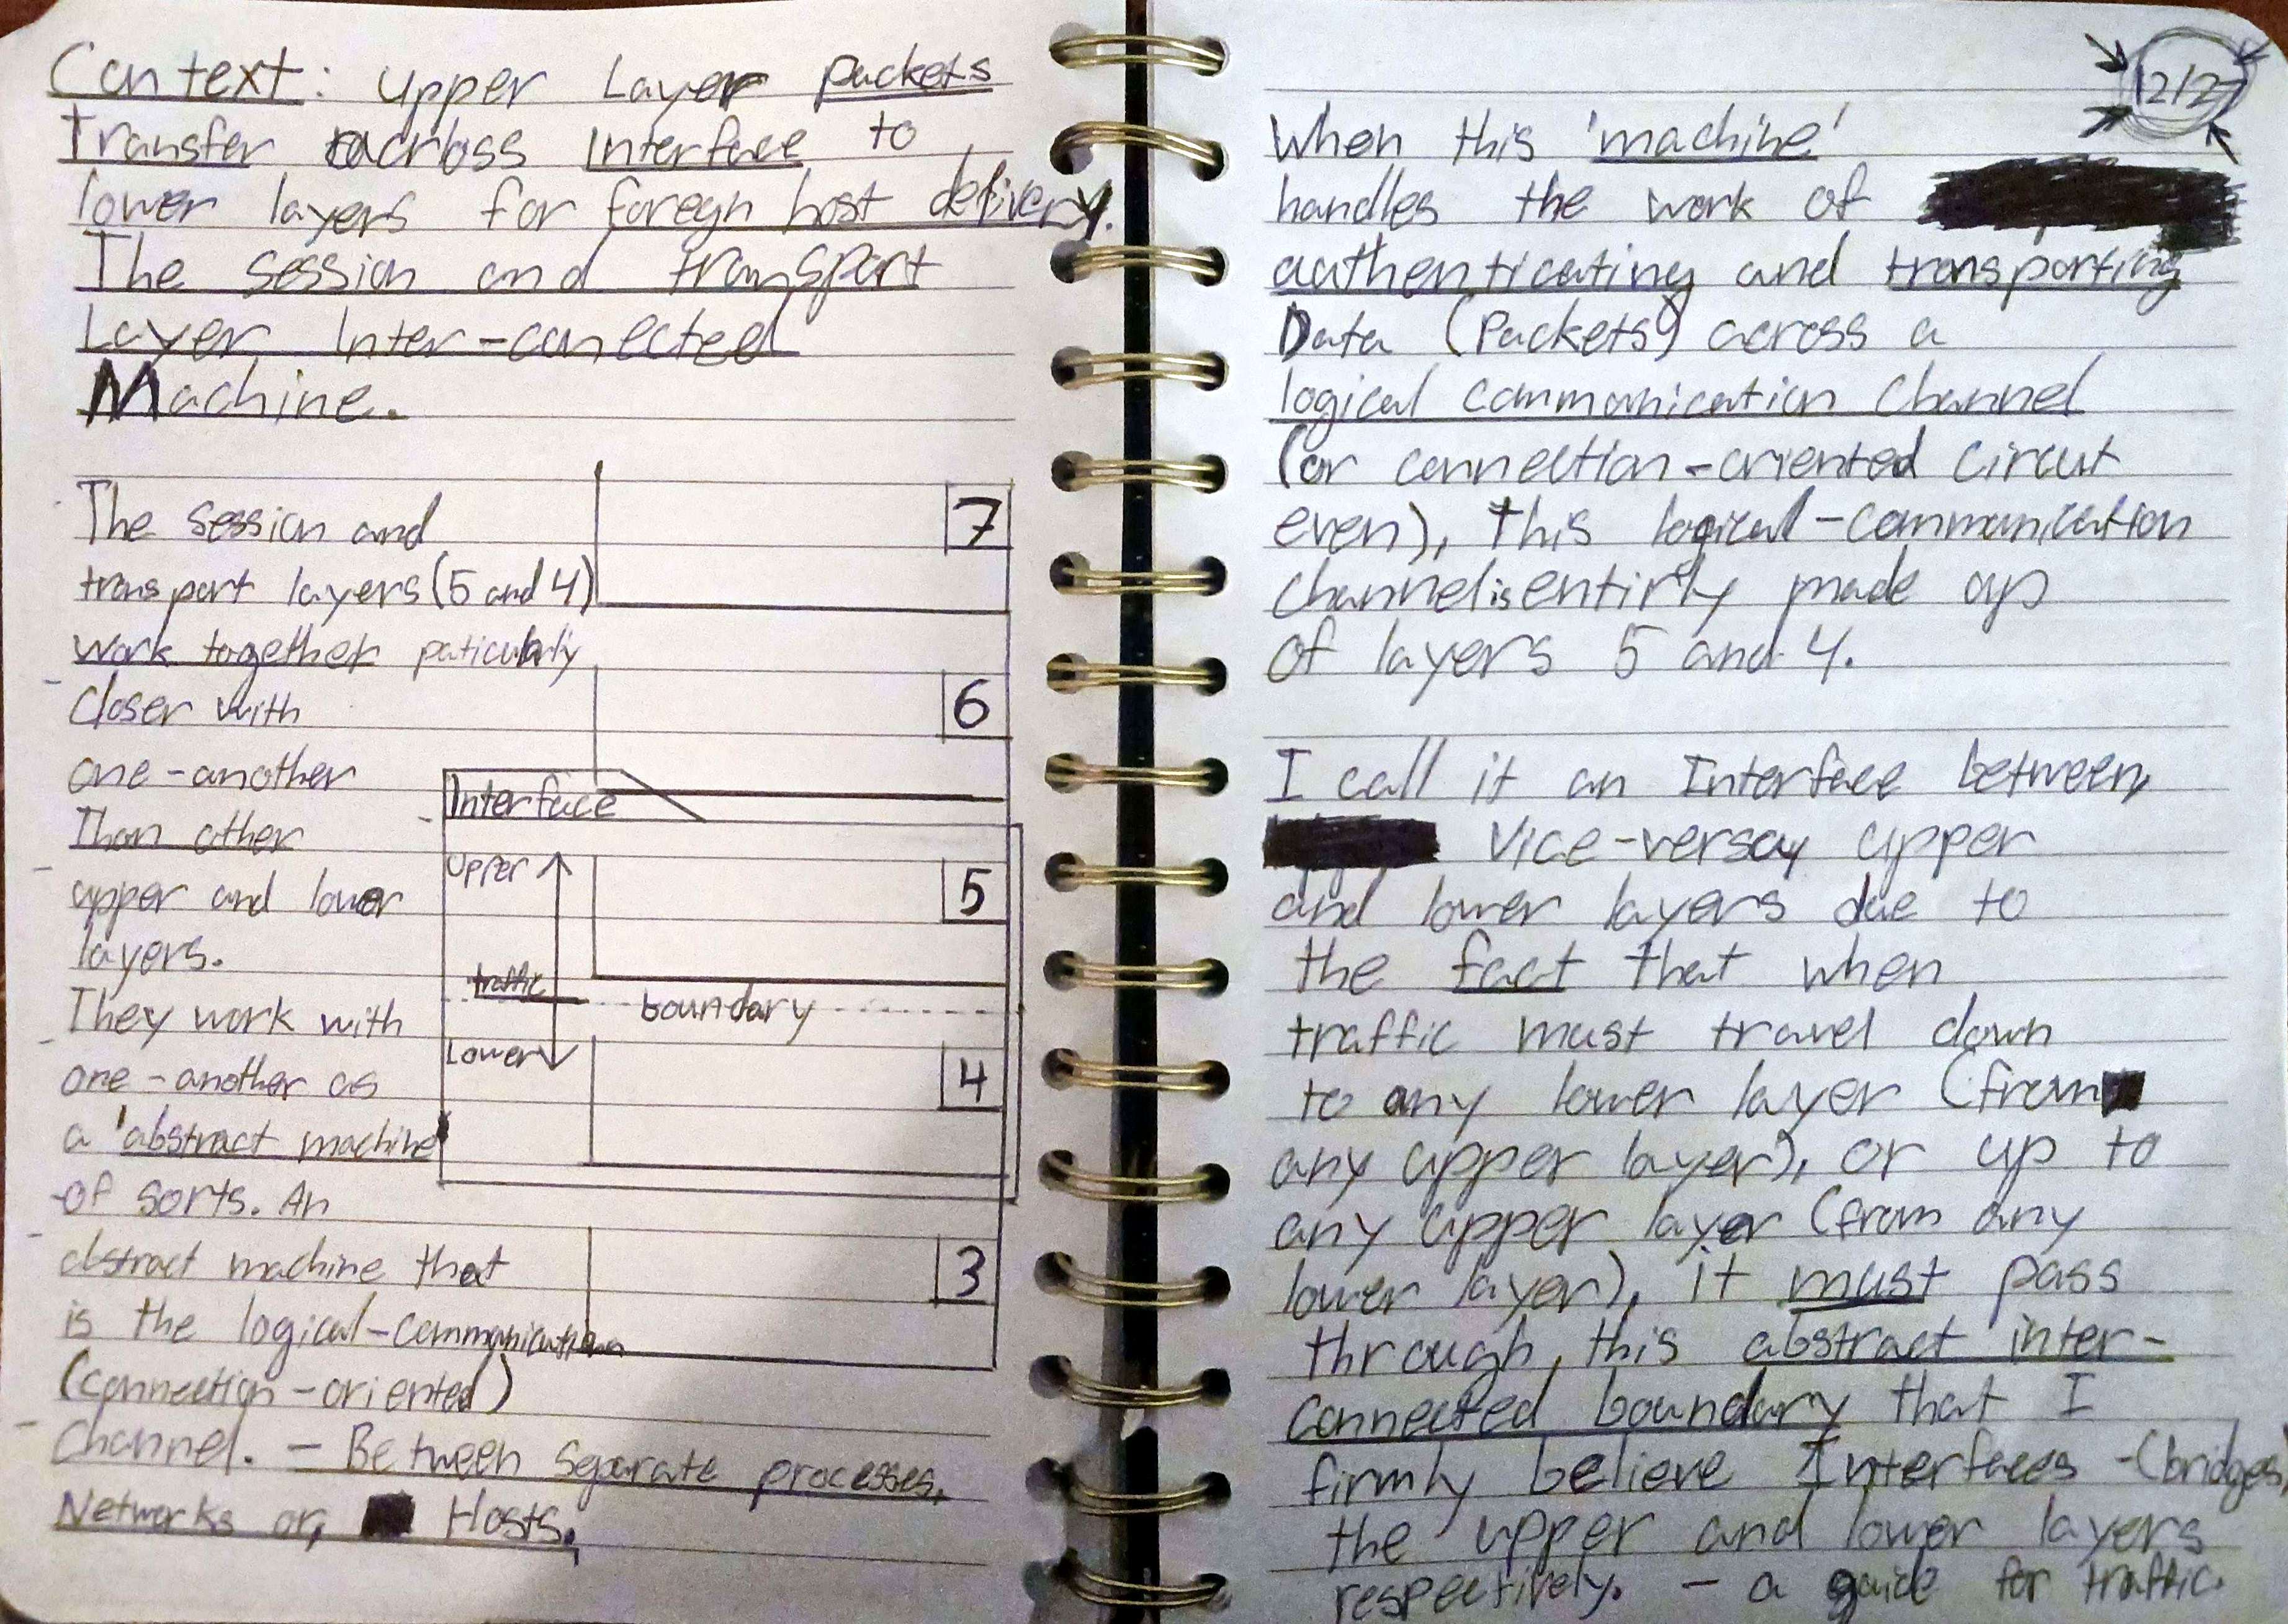 Context: Upper Layer packets
Transfer across Interface to
lower layers for foregn host delivery.
The Session and transport
Layer Inter-conected
Machine.
The Session and
transport layers (5 and 4)
work together paticularly
closer with
one-another
Than other
upper and lower
layers.
They work with
one-another as
a 'abstract machine'
of sorts. An
abstract machine that
is the logical-communication
(connection-oriented)
Channel. - Between Separate processes,
Networks or, Hosts.
7
6
Interface
Upper
5
traffic
boundary
Lower
4
3
12/27
When this 'machine'
handles the work of
authenticating and transporting
Data (Packets) across a
logical communication channel
(or connection-oriented circut
even), this logical-communication
channel is entirly made up
of layers 5 and 4.
I call it an Interface between,
vice-versay upper
and lower layers due to
the fact that when
traffic must travel down
to any lower layer (from
any upper layer), or up to
any upper layer (from any
lower layer), it must pass
through, this abstract inter-
connected boundary that I
firmly believe Interfaces - (bridges)
the upper and lower layers
respectively. - a guide for traffic.